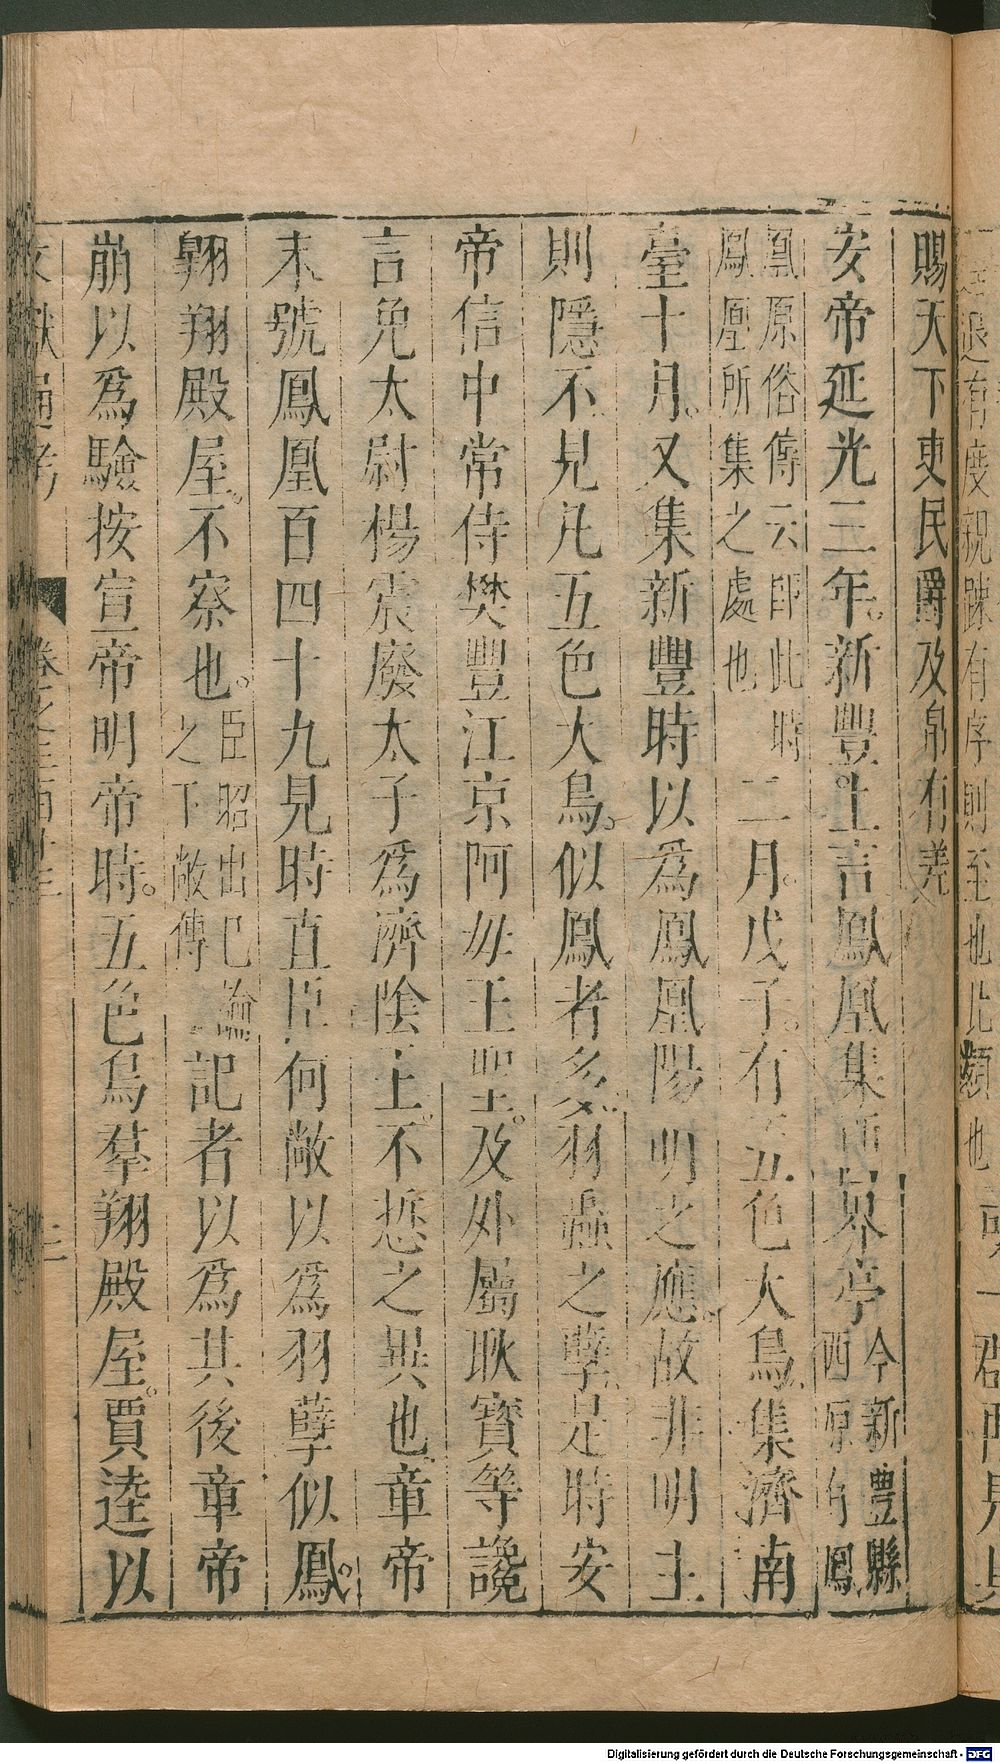 賜天下吏民爵及帛有差
安帝延光三年。新豐上言鳳凰集西界亭今新豐縣西原有鳳
凰原俗傳云即此時鳳凰所集之處也二月。戊子。有五色大鳥集濟南
臺十月。又集新豐時以為鳳凰陽明之應。故非明主
則隱不見凡五色大鳥。似鳳者多羽蟲之孽是時安
帝信中常侍樊豐江京阿母王聖。及外屬耿寶等讒
言免太尉楊震廢太子為濟陰王。不悊之異也章帝
末號鳳凰百四十九見時直臣何敞以為羽孽似鳳。
翱翔殿屋。不察也。臣昭曰已論之敞傳記者以為其後章帝
崩以為驗按宣帝明帝時。五色鳥羣翔殿屋。賈逵以
文獻通考
Digitalisierung gefördert durch die Deutsche Forschungsgemeinschaft - DFG